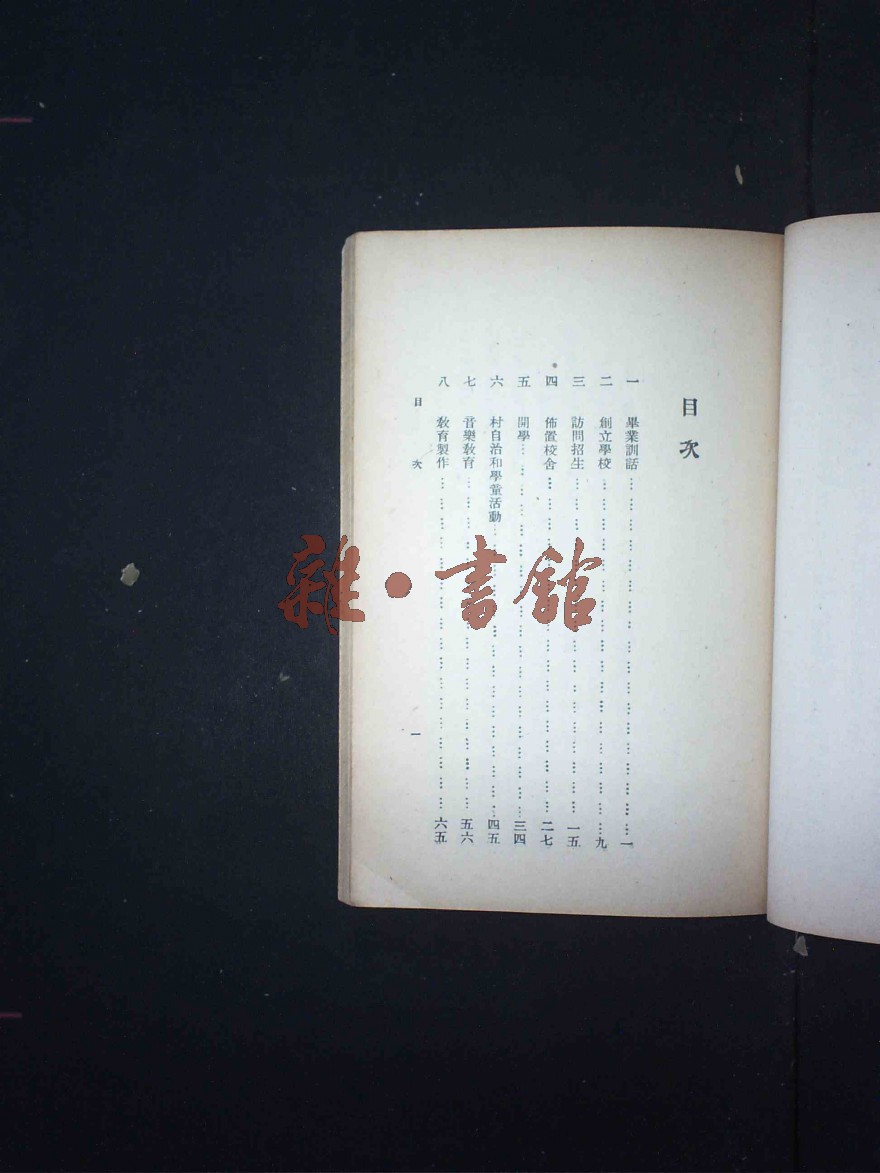 目次
一 畢業訓話…………………一
二 創立學校…………………九
三 訪問招生…………………一五
四 佈置校舍…………………二七
五 開學…………………三四
六 村自治和學童活動…………………四五
七 音樂教育…………………五六
八 教育製作…………………六五
目次
一
雜·書館